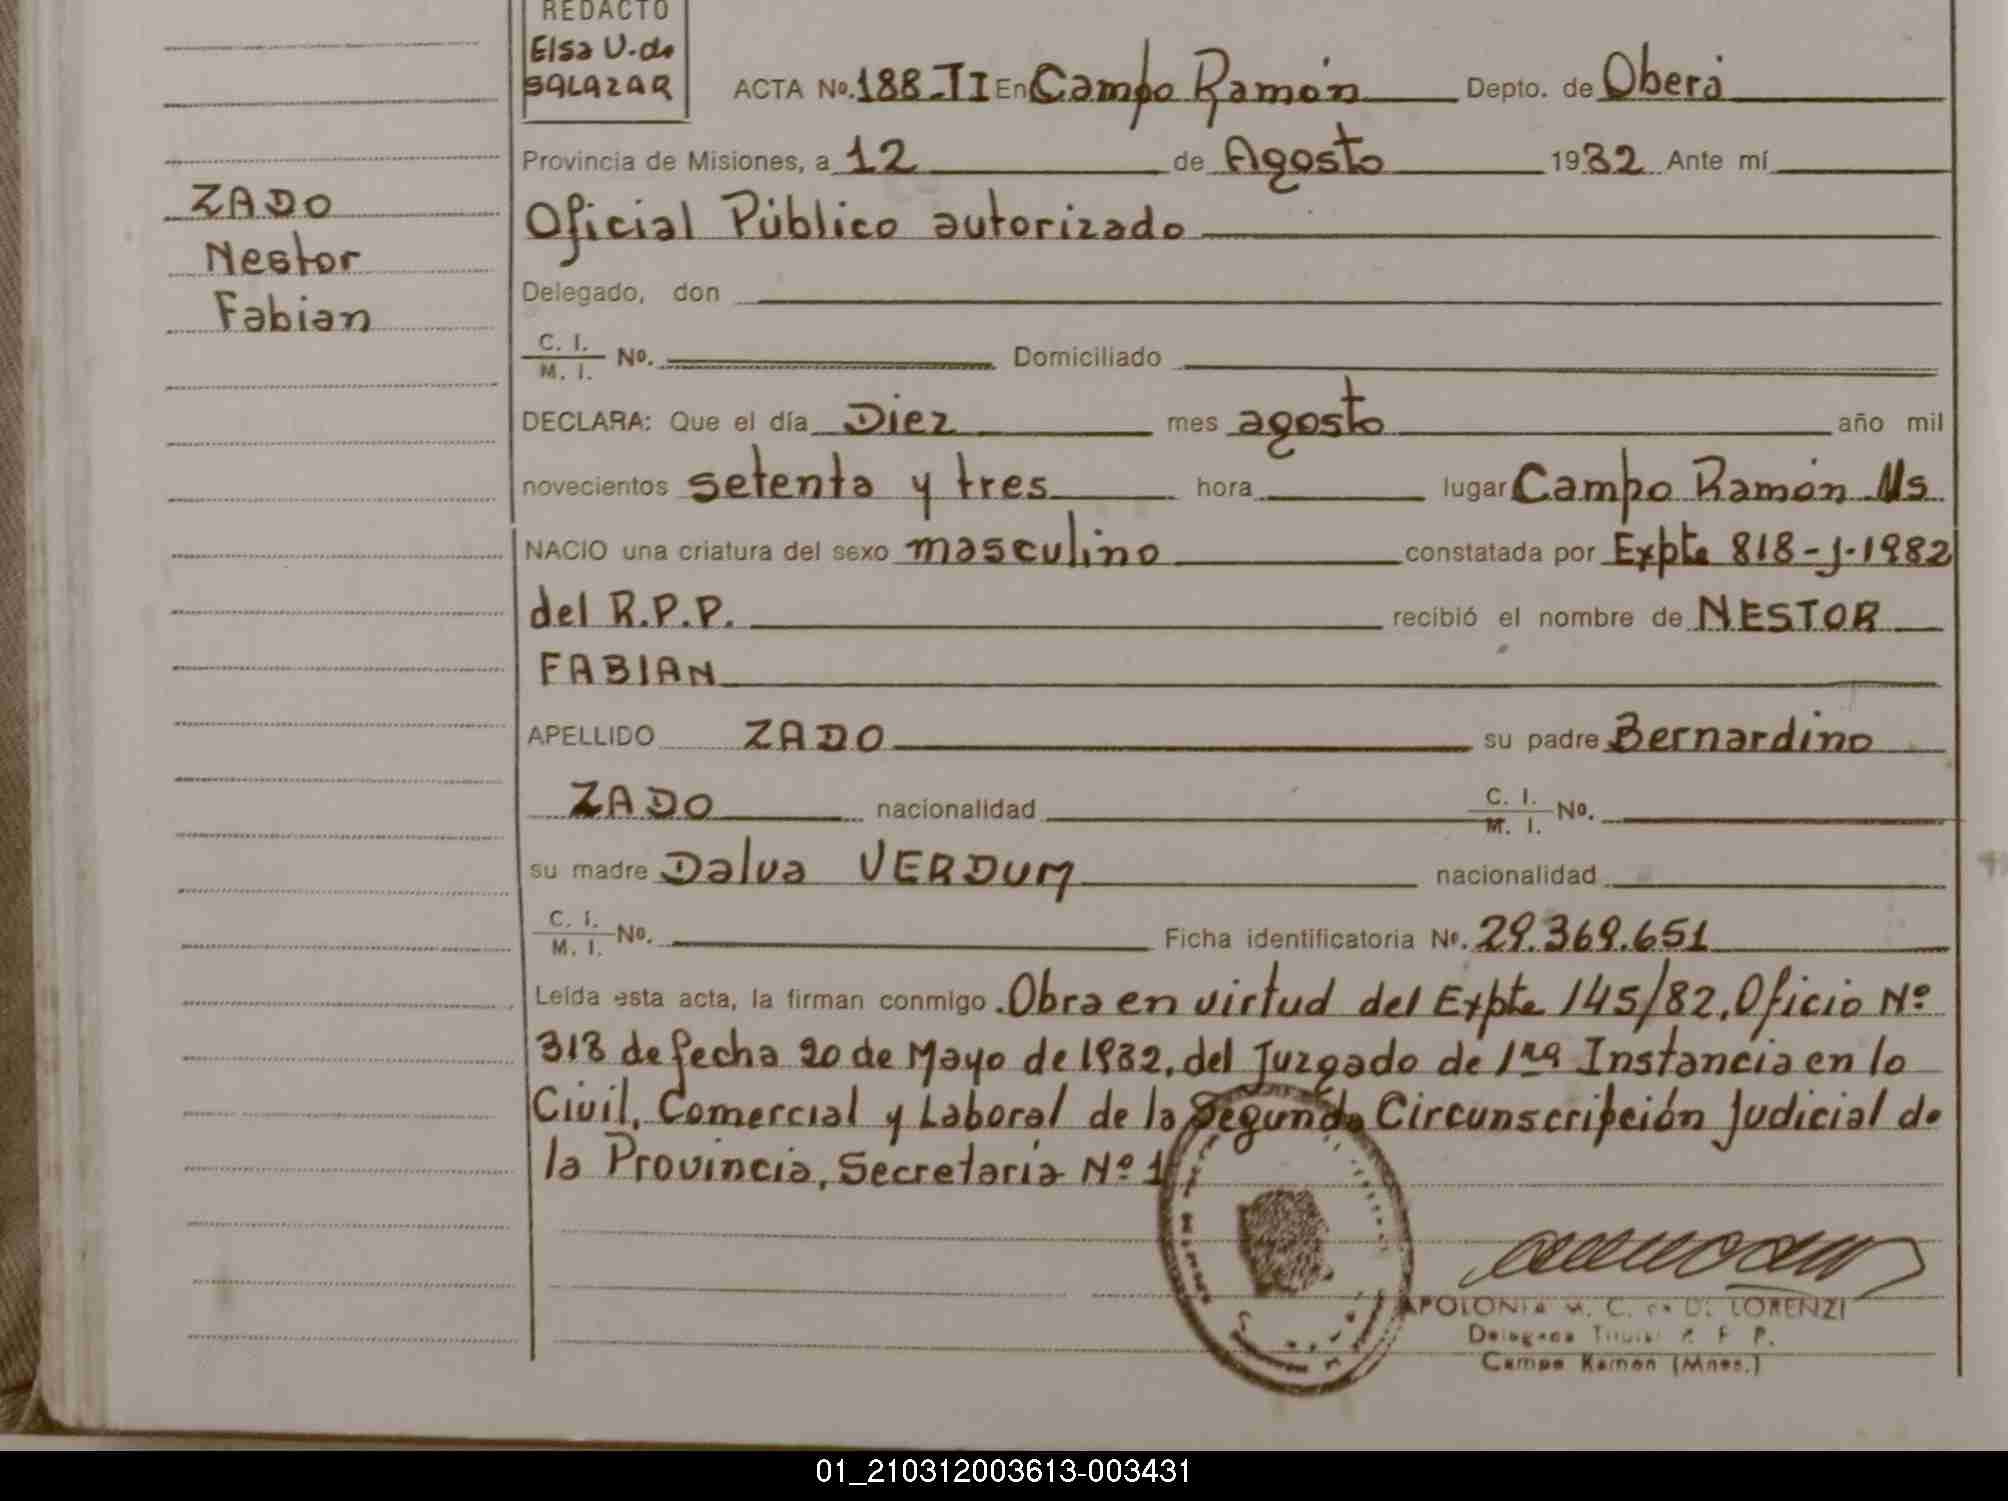 REDACTO
Elsa V. de
SALAZAR
ACTA No. 188-TI En Campo Ramón Depto. de Oberá
Provincia de Misiones, a 12 de Agosto 1982 Ante mí
Oficial Público autorizado
Delegado, don
C. I.
M. I. No. Domiciliado
DECLARA: Que el día Diez mes agosto año mil
novecientos setenta y tres hora lugar Campo Ramón Ms
NACIO una criatura del sexo masculino constatada por Expte 818-J-1982
del R.P.P. recibió el nombre de NESTOR
FABIAN
APELLIDO ZADO su padre Bernardino
ZADO nacionalidad C. I.
M. I. No.
su madre Dalva VERDUM nacionalidad
C. I.
M. I. No. Ficha identificatoria No. 29.369.651
Leída esta acta, la firman conmigo. Obra en virtud del Expte 145/82, Oficio Nº
318 de fecha 20 de Mayo de 1982, del Juzgado de 1ra Instancia en lo
Civil, Comercial y Laboral de la Segunda Circunscripción Judicial de
la Provincia, Secretaria Nº 1
ZADO
Nestor
Fabian
APOLONIA M. C. DE DI LORENZI
Delegada Titular R. P. P.
Campo Ramon (Mnes.)
01_210312003613-003431